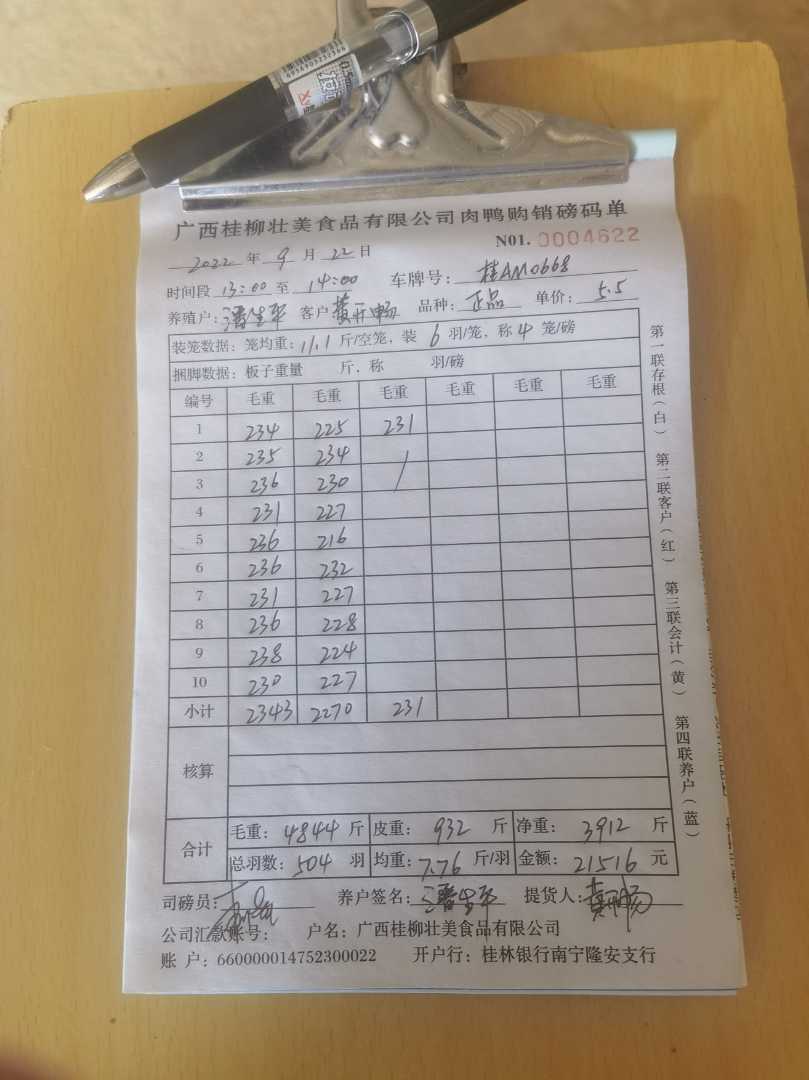 广西桂柳壮美食品有限公司肉鸭购销磅码单
2022 年 9 月 22 日 N01. 0004622
时间段 13:00 至 14:00 车牌号: 桂AM0668
养殖户: 潘生平 客户 黄开畅 品种: 正品 单价: 5.5
装笼数据: 笼均重: 11.1 斤/空笼, 装 6 羽/笼, 称 4 笼/磅
捆脚数据: 板子重量 斤, 称 羽/磅
编号 毛重 毛重 毛重 毛重 毛重 毛重
1 234 225 231
2 235 234
3 236 230
4 231 227
5 236 216
6 236 232
7 231 227
8 236 228
9 238 224
10 230 227
小计 2343 2270 231
核算
合计 毛重: 4844 斤 皮重: 932 斤 净重: 3912 斤
总羽数: 504 羽 均重: 7.76 斤/羽 金额: 21516 元
司磅员: 养户签名: 潘生平 提货人: 黄开畅
公司汇款账号: 户名: 广西桂柳壮美食品有限公司
账 户: 660000014752300022 开户行: 桂林银行南宁隆安支行
第一联存根(白) 第二联客户(红) 第三联会计(黄) 第四联养户(蓝)